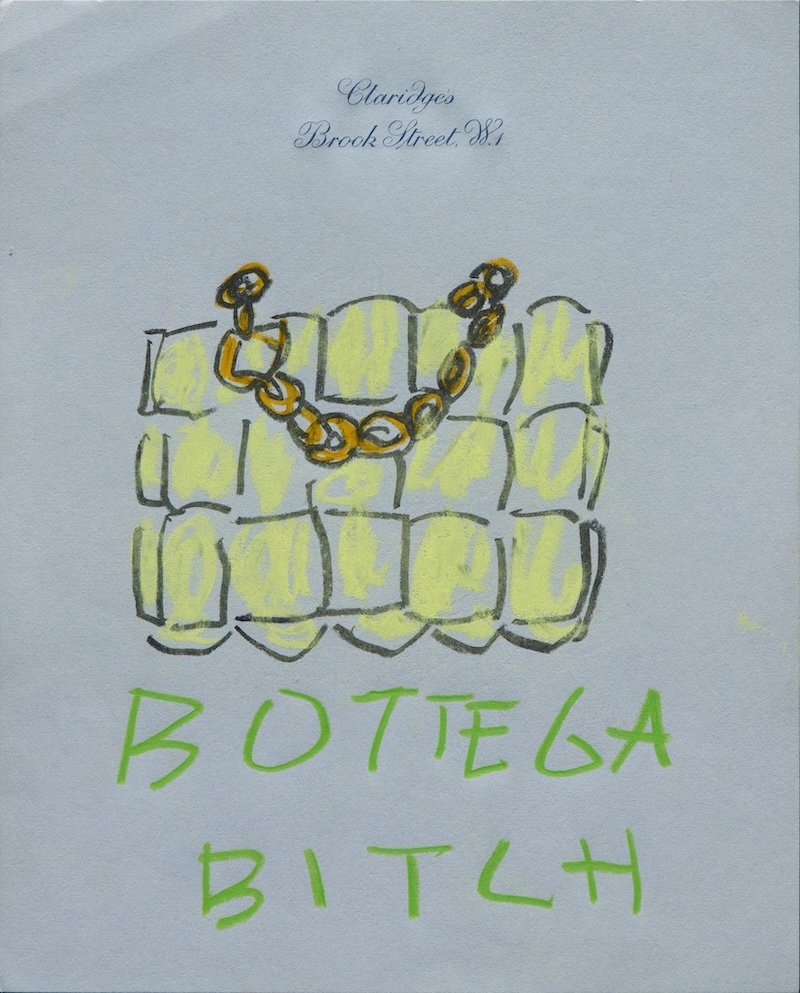 Claridge's
Brook Street, W.1
BOTTEGA
BITCH